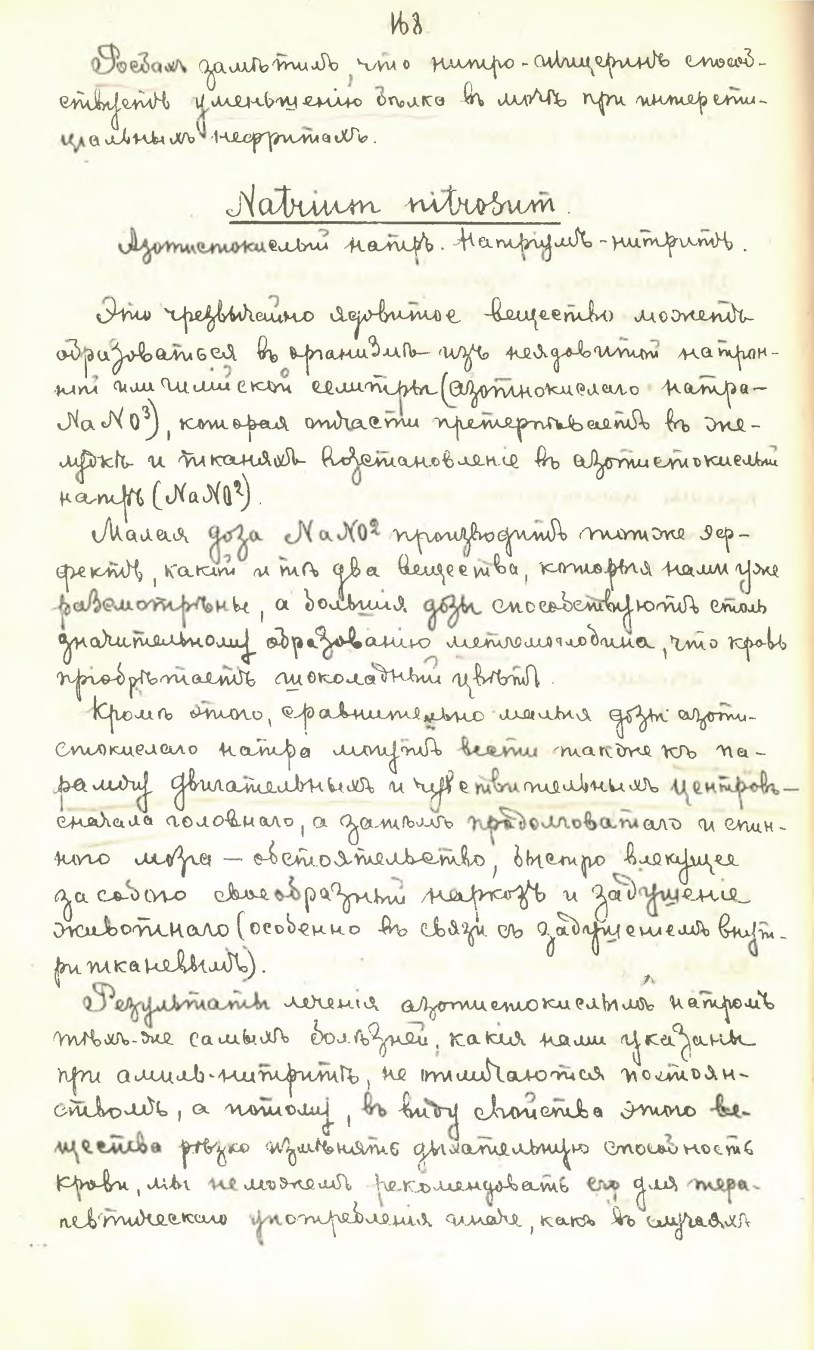 168
замѣтилъ, что нитро-глицеринъ способ-
ствуетъ уменьшенію бѣлка въ мочѣ при интерсти-
ціальныхъ нефритахъ.
Natrium nitrosum.
Азотистокислый натръ. Натріумъ-нитритъ.
Это чрезвычайно ядовитое вещество можетъ
образоваться въ организмѣ изъ неядовитой натрон-
ной или чилійской селитры (азотнокислаго натра—
NaNO³), которая отчасти претерпѣваетъ въ же-
лудкѣ и тканяхъ возстановленіе въ азотистокислый
натръ (NaNO²).
Малая доза NaNO² производитъ тотже эф-
фектъ, какъ и тѣ два вещества, которыя нами уже
разсмотрѣны, а большія дозы способствуютъ столь
значительному образованію метгемоглобина, что кровь
пріобрѣтаетъ шоколадный цвѣтъ.
Кромѣ этого, сравнительно малыя дозы азоти-
стокислаго натра могутъ вести также къ па-
раличу двигательныхъ и чувствительныхъ центровъ—
сначала головнаго, а затѣмъ продолговатаго и спин-
ного мозга — обстоятельство, быстро влекущее
за собою своеобразный наркозъ и задушеніе
животнаго (особенно въ связи съ задушеніемъ внут-
ритканевымъ).
Результаты леченія азотистокислымъ натромъ
тѣхъ-же самыхъ болѣзней, какія нами указаны
при амилъ-нитритѣ, не отличаются постоян-
ствомъ, а потому, въ виду свойства этого ве-
щества рѣзко измѣнять дыхательную способность
крови, мы не можемъ рекомендовать его для тера-
певтическаго употребленія иначе, какъ въ случаяхъ